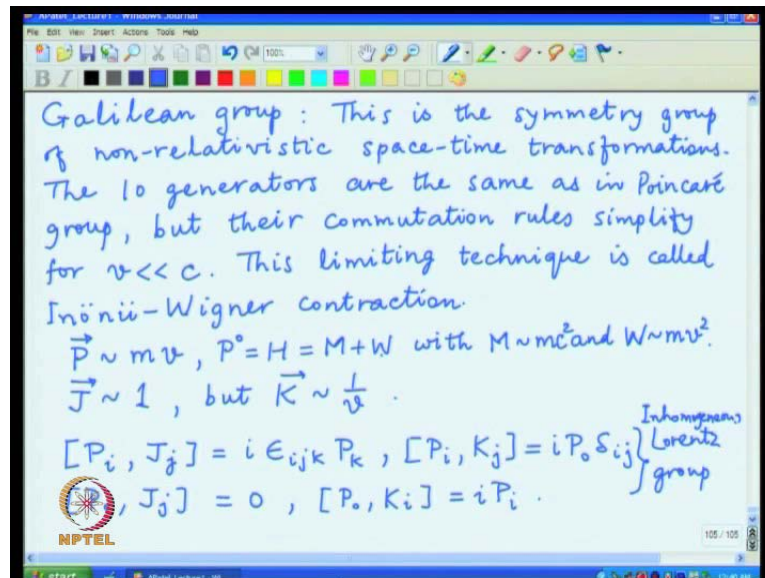 APatel_Lecture1 - Windows Journal
File Edit View Insert Actions Tools Help
100%
B I
Galilean group : This is the symmetry group
of non-relativistic space-time transformations.
The 10 generators are the same as in Poincaré
group, but their commutation rules simplify
for v << c. This limiting technique is called
Inönü-Wigner contraction.
P⃗ ~ m v , P⁰ = H = M + W with M ~ mc² and W ~ mv².
J⃗ ~ 1 , but K⃗ ~ 1/v .
[P_i , J_j] = i ε_ijk P_k , [P_i , K_j] = i P_0 δ_ij } Inhomogeneous Lorentz group
, J_j] = 0 , [P_0 , K_i] = i P_i .
NPTEL
105 / 105
start